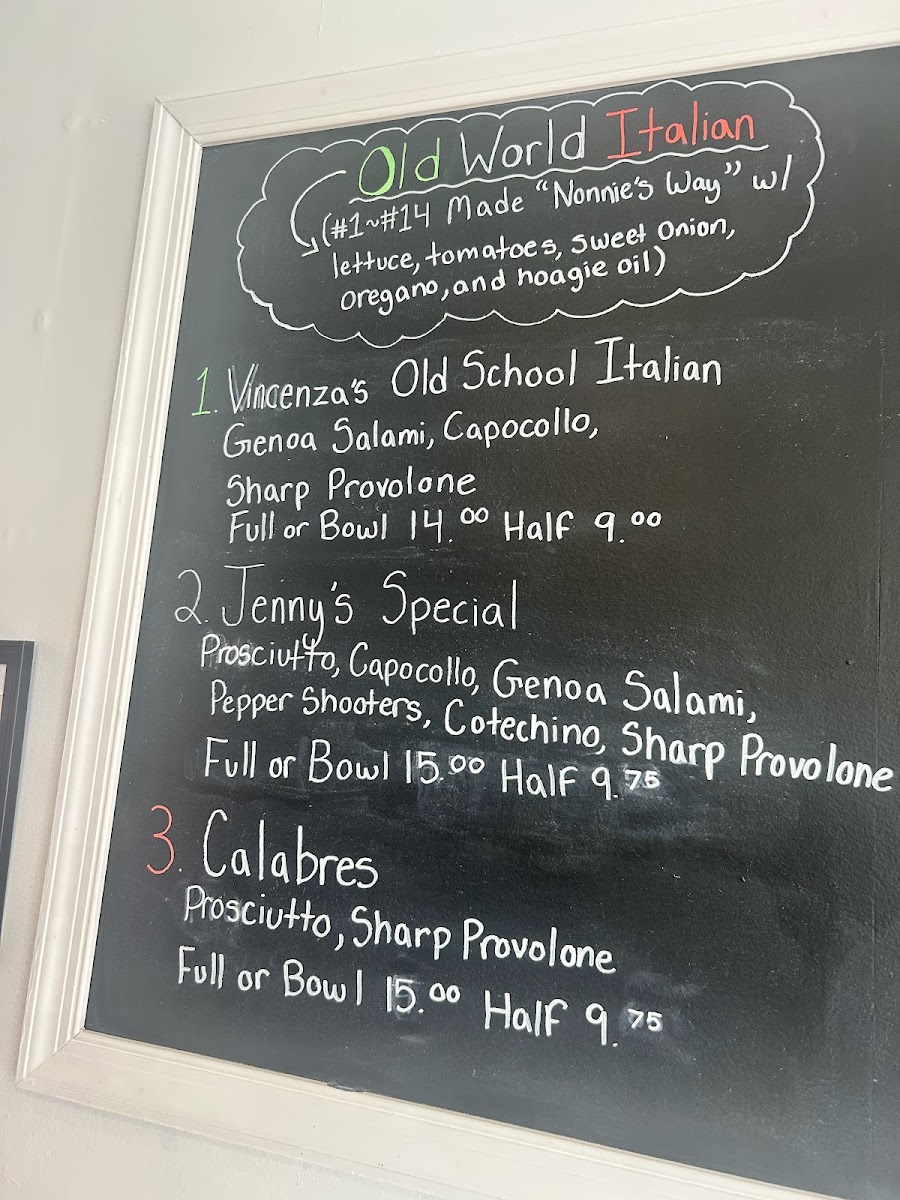 Old World Italian
(#1~#14 Made "Nonnie's Way" w/
lettuce, tomatoes, sweet onion,
oregano, and hoagie oil)
1. Vincenza's Old School Italian
Genoa Salami, Capocollo,
Sharp Provolone
Full or Bowl 14.00 Half 9.00
2. Jenny's Special
Prosciutto, Capocollo, Genoa Salami,
Pepper Shooters, Cotechino, Sharp Provolone
Full or Bowl 15.00 Half 9.75
3. Calabres
Prosciutto, Sharp Provolone
Full or Bowl 15.00 Half 9.75